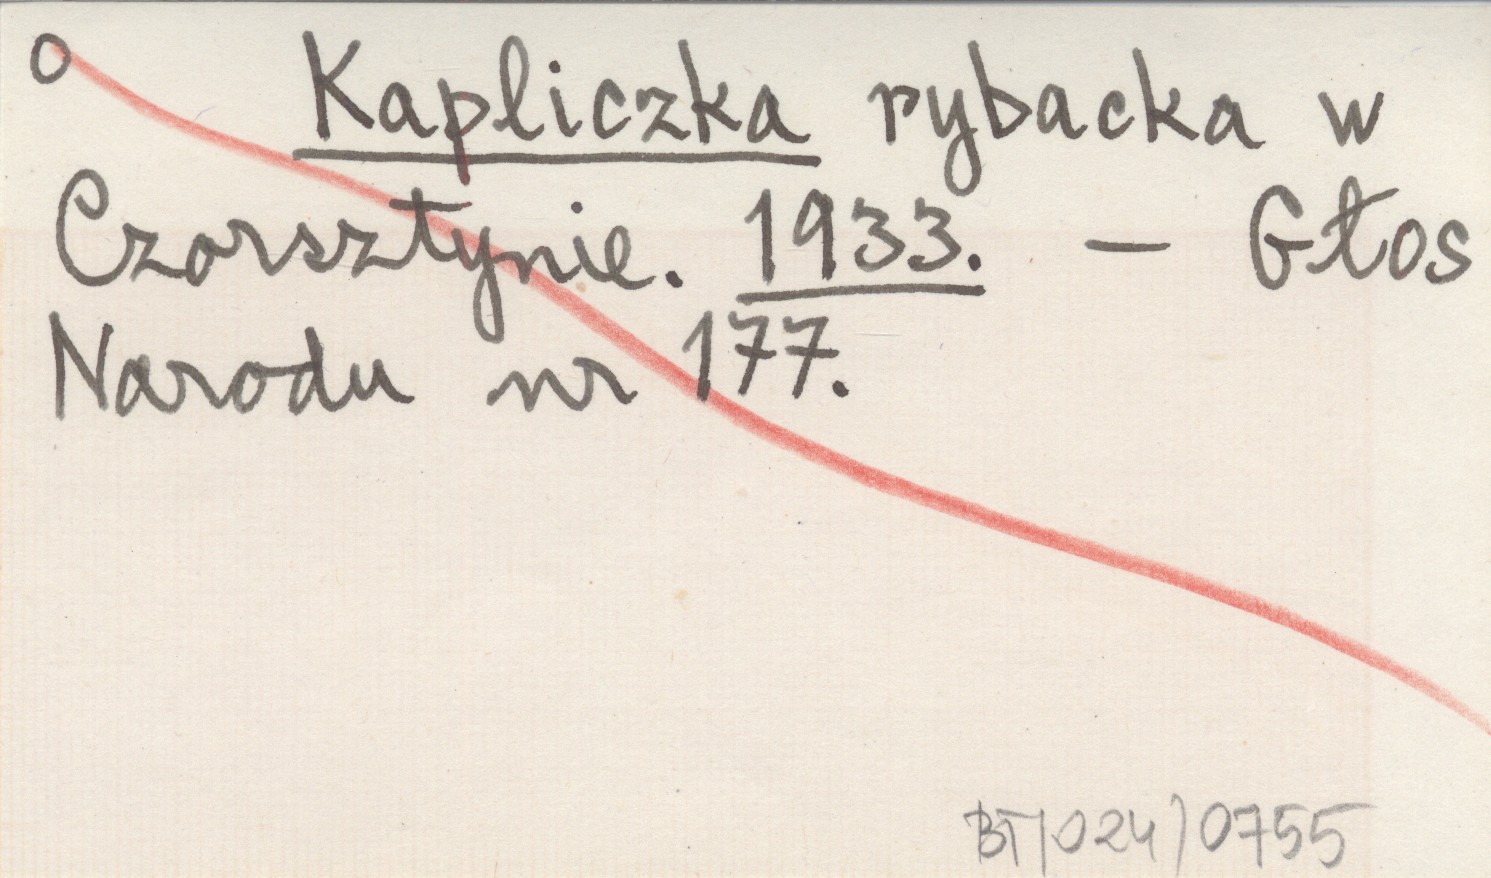 o Kapliczka rybacka w
Czorsztynie. 1933. — Głos
Narodu nr 177.
BT/024/0755